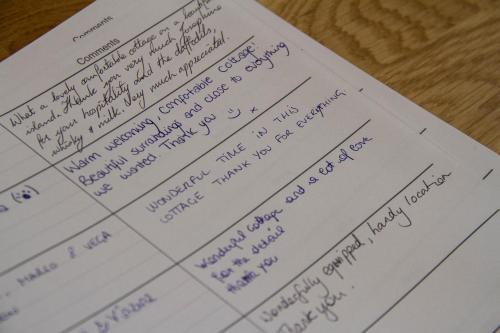 Comments
Comments
What a lovely comfortable cottage on a beautiful
island. Thank you very much Josephine
for your hospitality and the daffodils,
whisky & milk. Very much appreciated.
Warm welcoming, comfortable cottage.
Beautiful surroundings and close to everything
we wanted. Thank you x
WONDERFUL TIME IN THIS
COTTAGE THANK YOU FOR EVERYTHING.
MARIO & VEGA
Wonderful cottage and a lot of love
for the detail
thank you
Wonderfully equipped, handy location
Thank you.